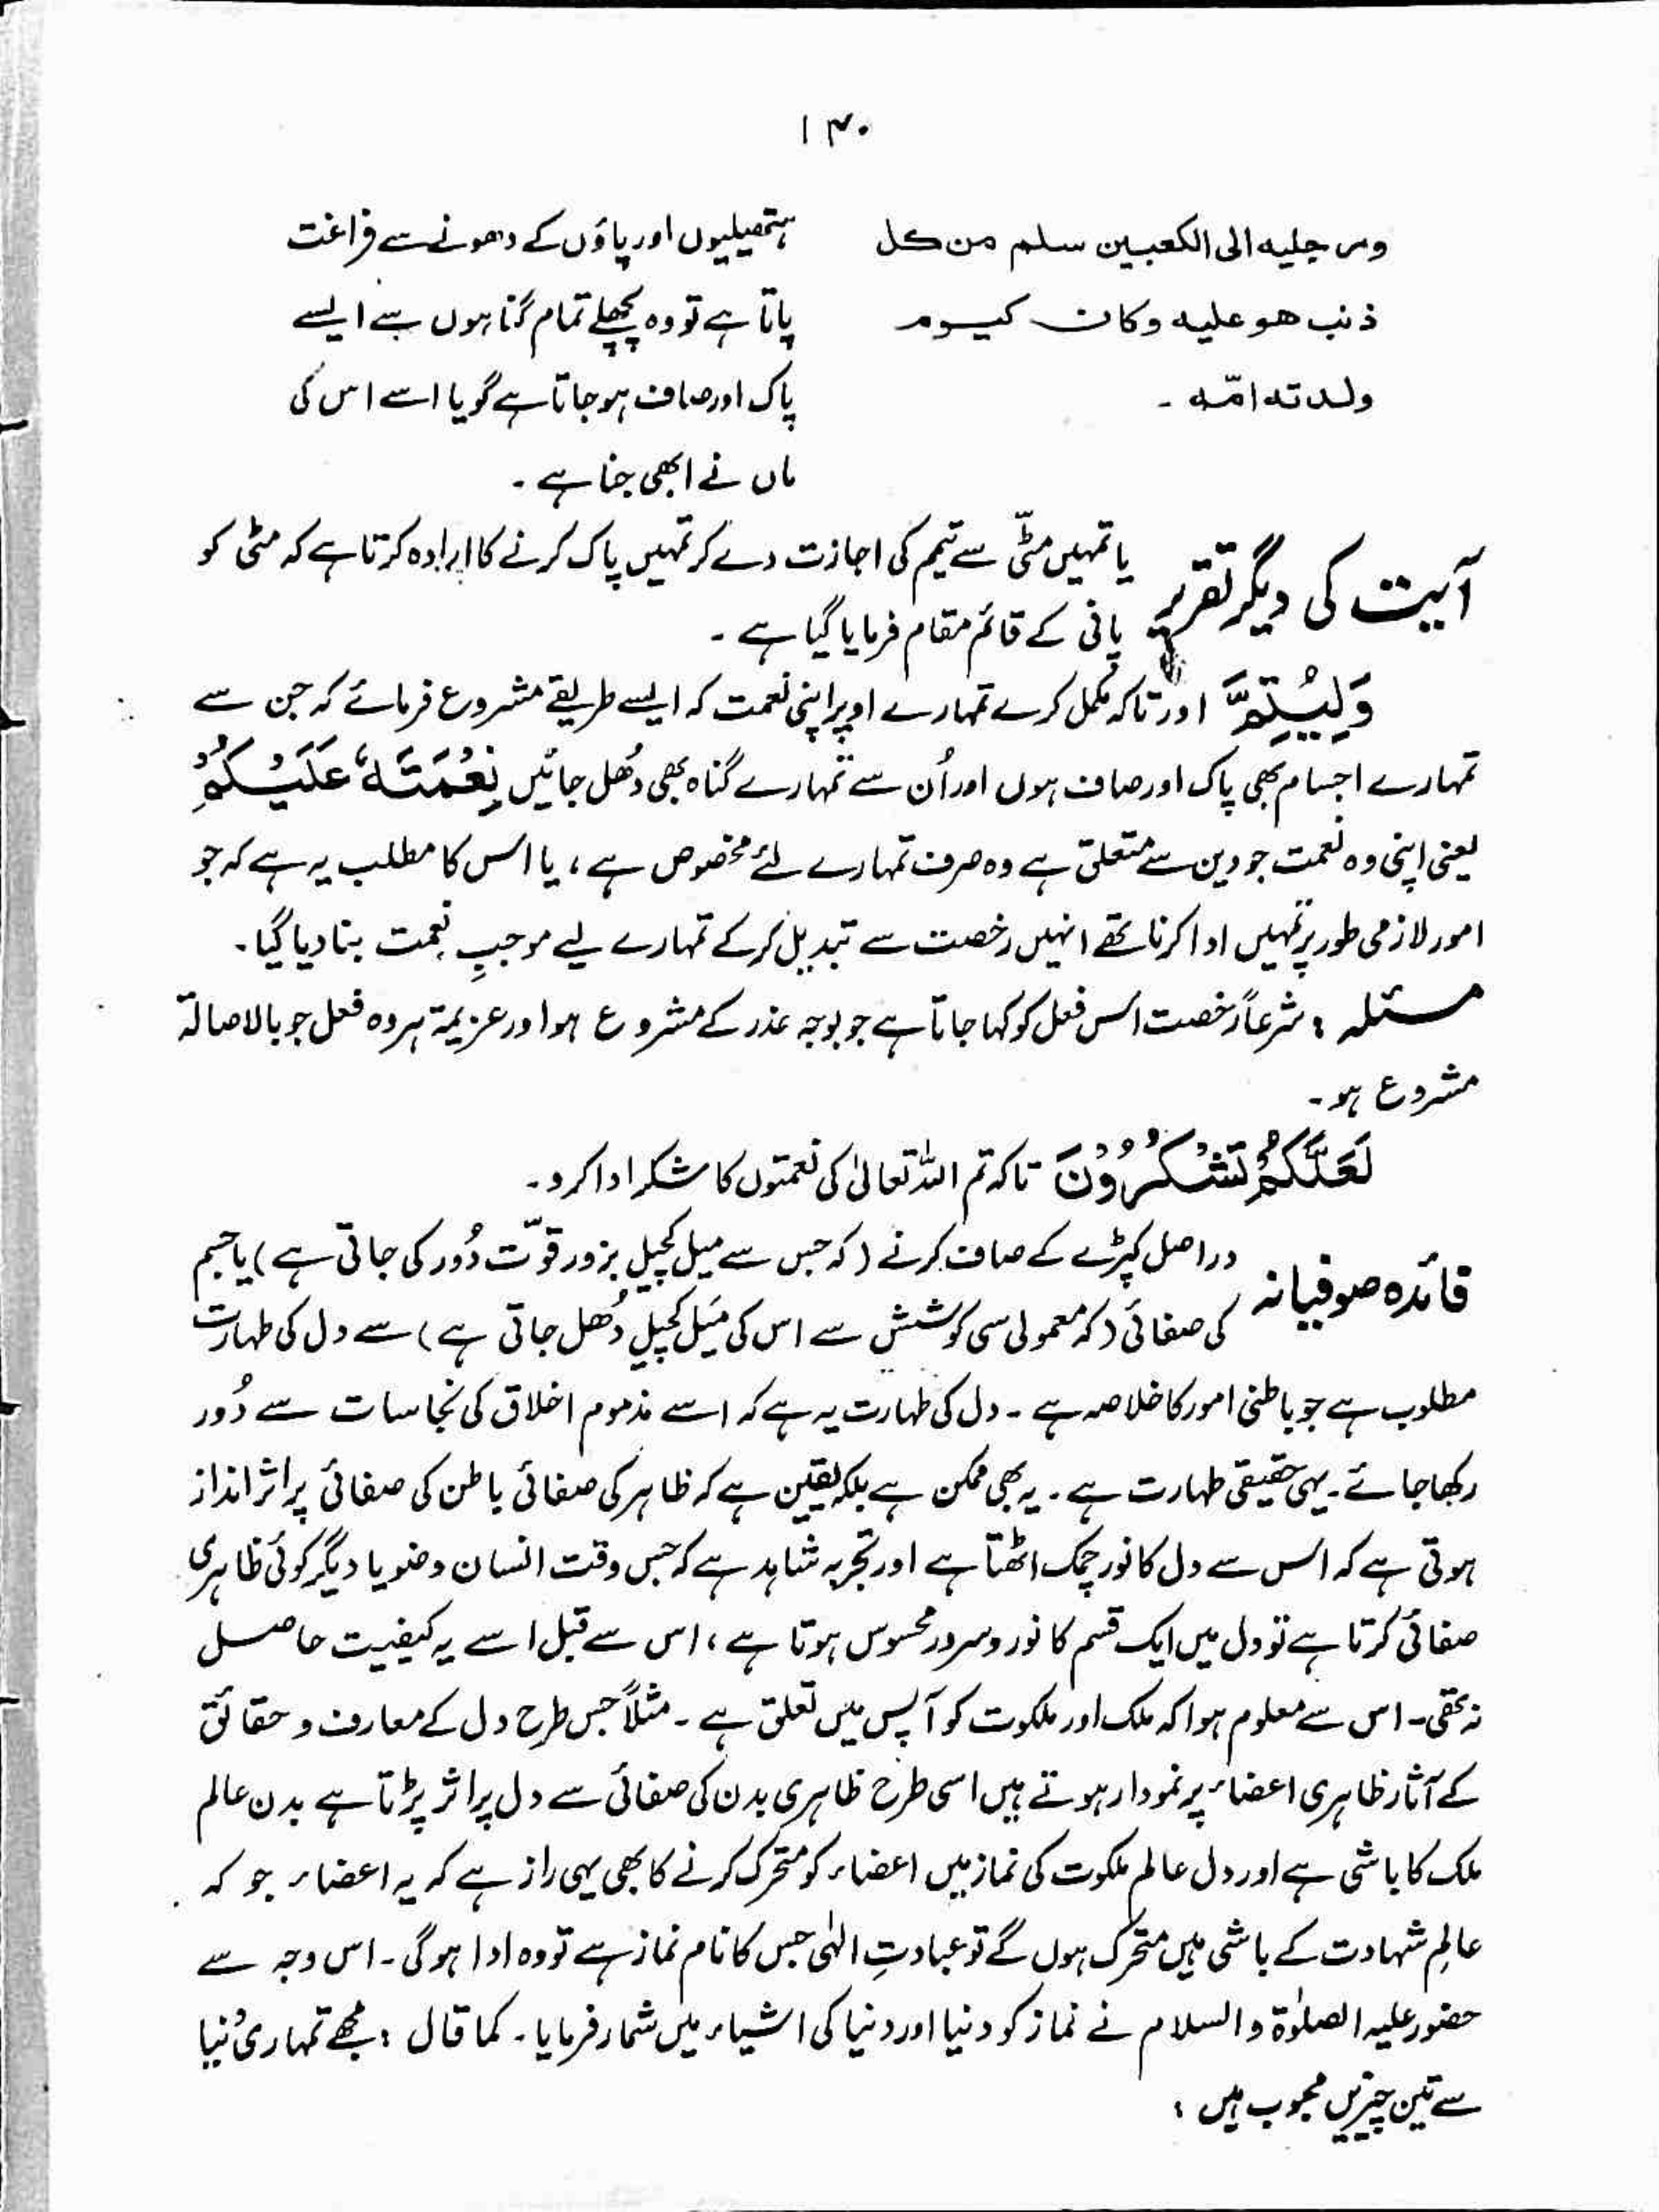 ۱۴۰
ورجلیه الی الکعبین سلم من کل
ذنب هو علیه وکان کیوم
ولدته امّه ۔
ہتھیلیوں اور پاؤں کے دھونے سے فراغت
پاتا ہے تو وہ پچھلے تمام گناہوں سے ایسے
پاک اور صاف ہو جاتا ہے گویا اسے اس کی
ماں نے ابھی جنا ہے ۔
آیت کی دیگر تقریر یا تمہیں مٹّی سے تیمم کی اجازت دے کر تمہیں پاک کرنے کا ارادہ کرتا ہے کہ مٹی کو
پانی کے قائم مقام فرمایا گیا ہے ۔
وَلِيُتِمَّ اور تاکہ مکمل کرے تمہارے اوپر اپنی نعمت کہ ایسے طریقے مشروع فرمائے کہ جن سے
تمہارے اجسام بھی پاک اور صاف ہوں اور اُن سے تمہارے گناہ بھی دُھل جائیں نِعْمَتَهٗ عَلَيْكُمْ
یعنی اپنی وہ نعمت جو دین سے متعلق ہے وہ صرف تمہارے لئے مخصوص ہے ، یا اس کا مطلب یہ ہے کہ جو
امور لازمی طور پر تمہیں ادا کرنا تھے انہیں رخصت سے تبدیل کر کے تمہارے لیے موجبِ نعمت بنا دیا گیا ۔
مسئلہ : شرعاً رخصت اس فعل کو کہا جاتا ہے جو بوجہ عذر کے مشروع ہو اور عزیمۃ ہر وہ فعل جو بالاصالۃ
مشروع ہو ۔
لَعَلَّكُمْ تَشْكُرُوْنَ تاکہ تم اللہ تعالیٰ کی نعمتوں کا شکر ادا کرو ۔
فائدہ صوفیانہ دراصل کپڑے کے صاف کرنے ( کہ جس سے میل کچیل بزور قوّت دُور کی جاتی ہے ) یا جسم
کی صفائی ( کہ معمولی سی کوشش سے اس کی مَیل کچیل دُھل جاتی ہے ) سے دل کی طہارت
مطلوب ہے جو باطنی امور کا خلاصہ ہے ۔ دل کی طہارت یہ ہے کہ اسے مذموم اخلاق کی نجاسات سے دُور
رکھا جائے ۔ یہی حقیقی طہارت ہے ۔ یہ بھی ممکن ہے بلکہ یقین ہے کہ ظاہر کی صفائی باطن کی صفائی پر اثر انداز
ہوتی ہے کہ اس سے دل کا نور چمک اٹھتا ہے اور تجربہ شاہد ہے کہ جس وقت انسان وضو یا دیگر کوئی ظاہری
صفائی کرتا ہے تو دل میں ایک قسم کا نور و سرور محسوس ہوتا ہے ، اس سے قبل اسے یہ کیفیت حاصل
نہ تھی ۔ اس سے معلوم ہوا کہ ملک اور ملکوت کو آپس میں تعلق ہے ۔ مثلاً جس طرح دل کے معارف و حقائق
کے آثار ظاہری اعضاء پر نمودار ہوتے ہیں اسی طرح ظاہری بدن کی صفائی سے دل پر اثر پڑتا ہے بدن عالم
ملک کا باشی ہے اور دل عالم ملکوت کی نماز میں اعضاء کو متحرک کرنے کا بھی یہی راز ہے کہ یہ اعضاء جو کہ
عالمِ شہادت کے باشی ہیں متحرک ہوں گے تو عبادتِ الٰہی جس کا نام نماز ہے تو وہ ادا ہو گی ۔ اس وجہ سے
حضور علیہ الصلوٰۃ والسلام نے نماز کو دنیا اور دنیا کی اشیاء میں شمار فرمایا ۔ کما قال : مجھے تمہاری دُنیا
سے تین چیزیں محبوب ہیں :